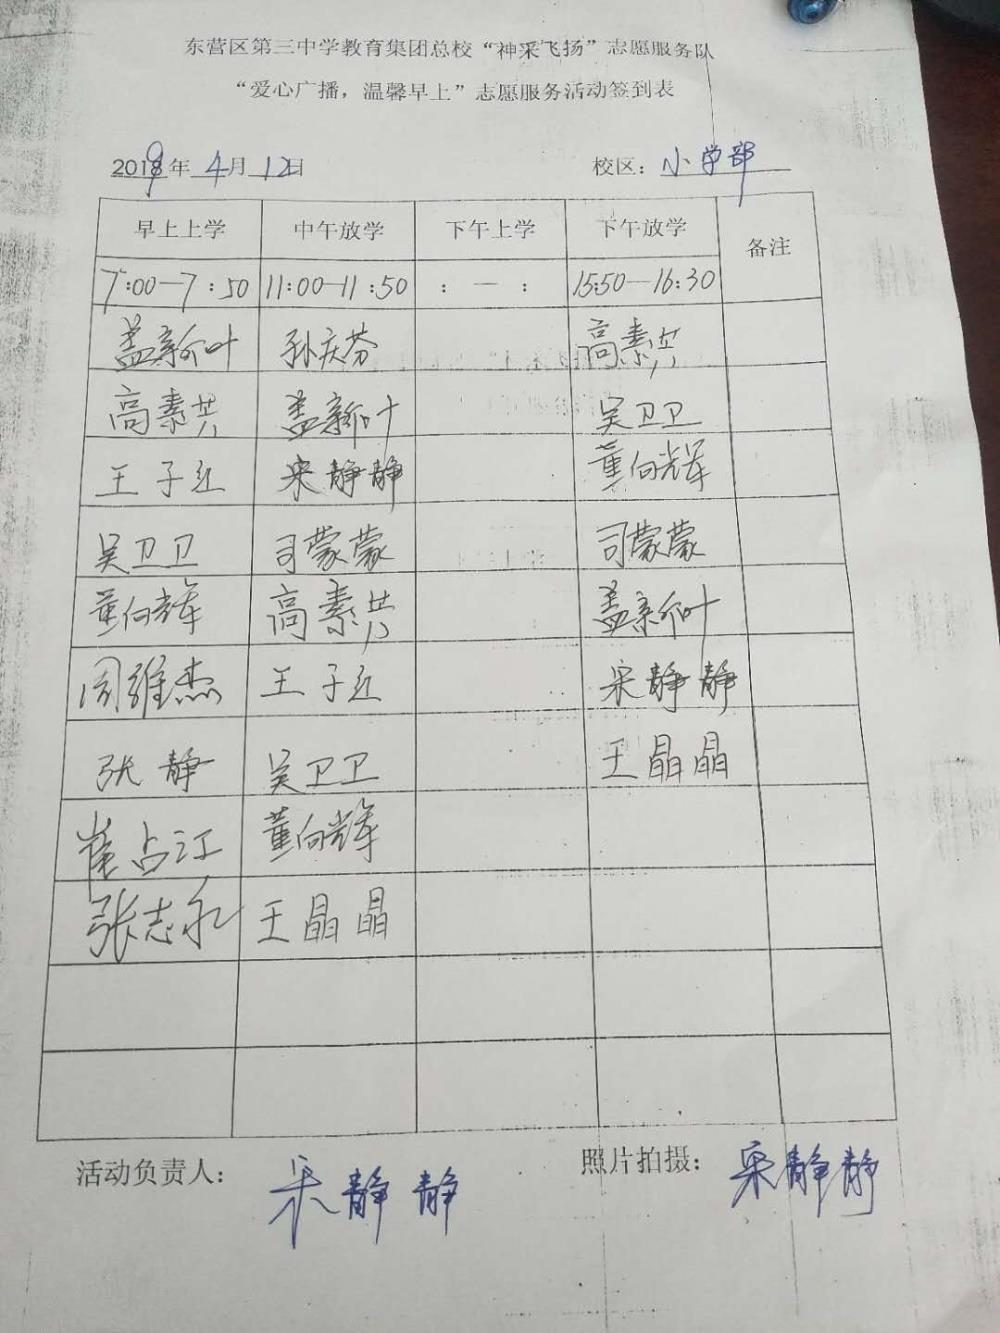 东营区第三中学教育集团总校“神采飞扬”志愿服务队
“爱心广播，温馨早上”志愿服务活动签到表
2019年 4月 12日 校区：小学部
早上上学 中午放学 下午上学 下午放学 备注
7:00—7:50 11:00—11:50 : — : 15:50—16:30
盖新叶 孙庆芬 高素共
高素共 盖新叶 吴卫卫
王子红 宋静静 董向辉
吴卫卫 司蒙蒙 司蒙蒙
董向辉 高素共 盖新叶
周维杰 王子红 宋静静
张静 吴卫卫 王晶晶
崔占江 董向辉
张志永 王晶晶
活动负责人： 宋静静 照片拍摄： 宋静静